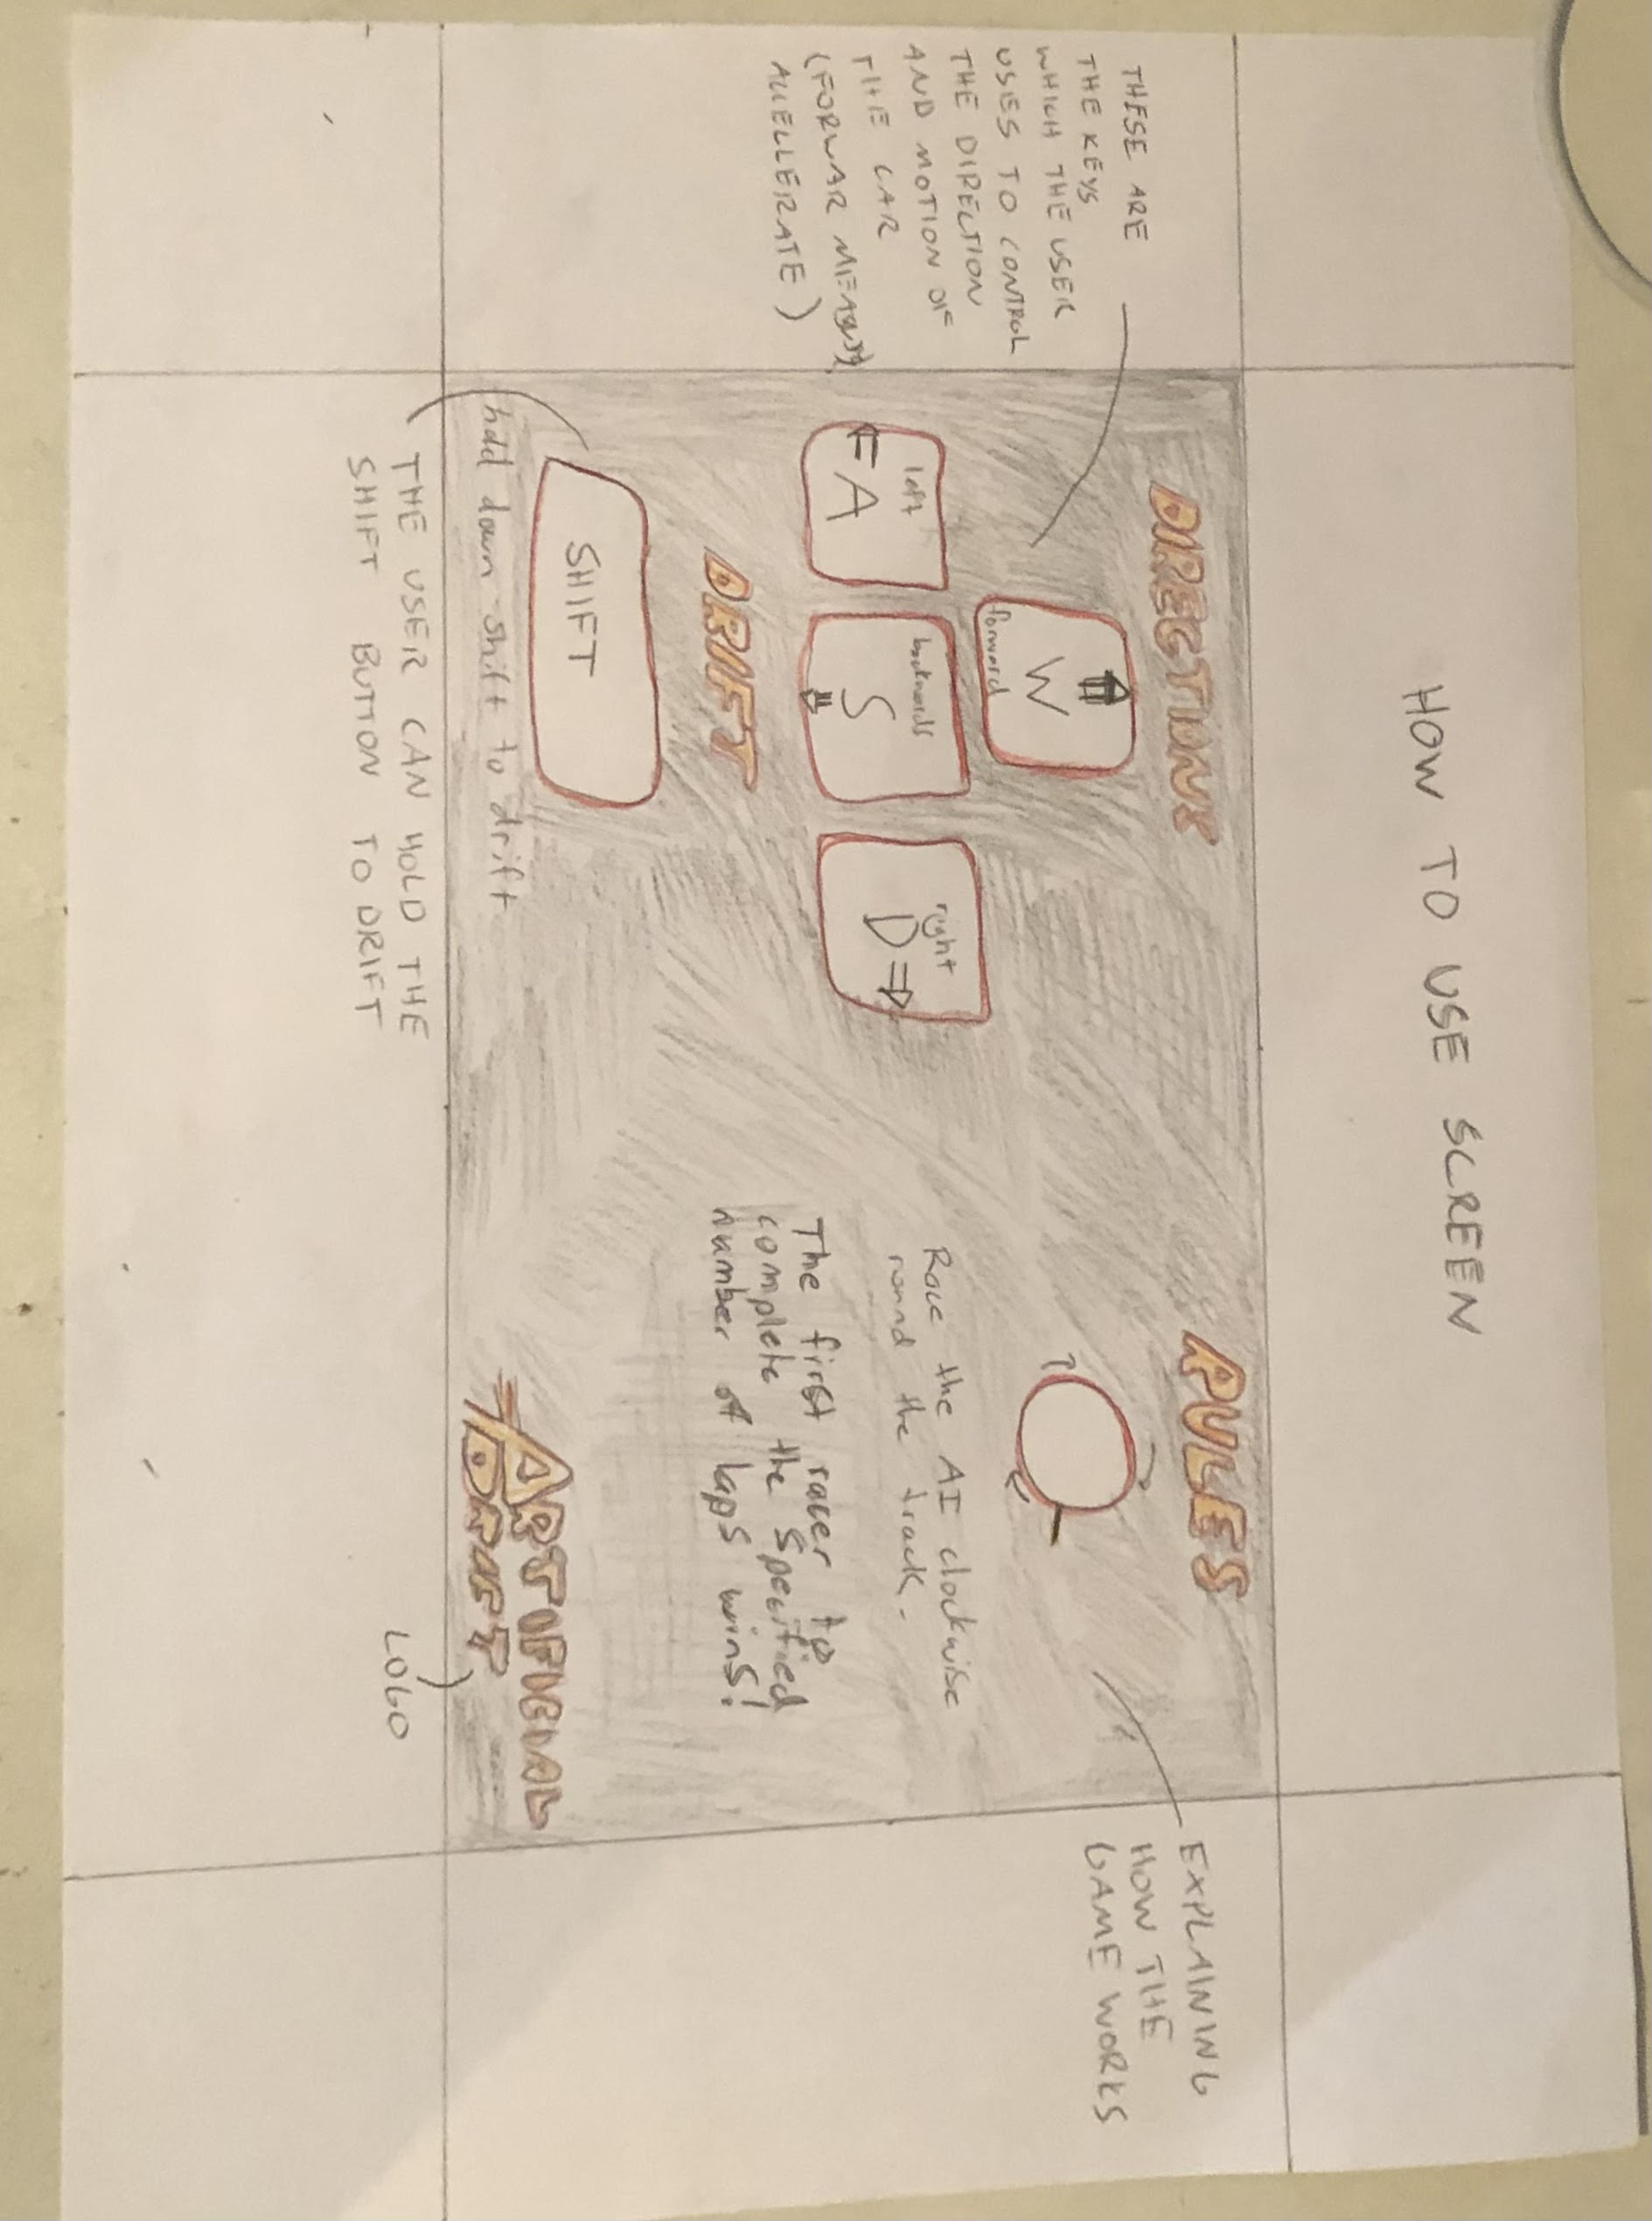 HOW TO USE SCREEN
THESE ARE
THE KEYS
WHICH THE USER
USES TO CONTROL
THE DIRECTION
AND MOTION OF
THE CAR
(FORWAR MEANS
ACCELLERATE)
DIRECTIONS
W
forward
left
A
backwards
S
right
D
DRIFT
SHIFT
hold down shift to drift
THE USER CAN HOLD THE
SHIFT BUTTON TO DRIFT
RULES
Race the AI clockwise
round the track.
The first racer to
complete the specified
number of laps wins!
ARTIFICIAL
DRIFT
LOGO
EXPLAINING
HOW THE
GAME WORKS